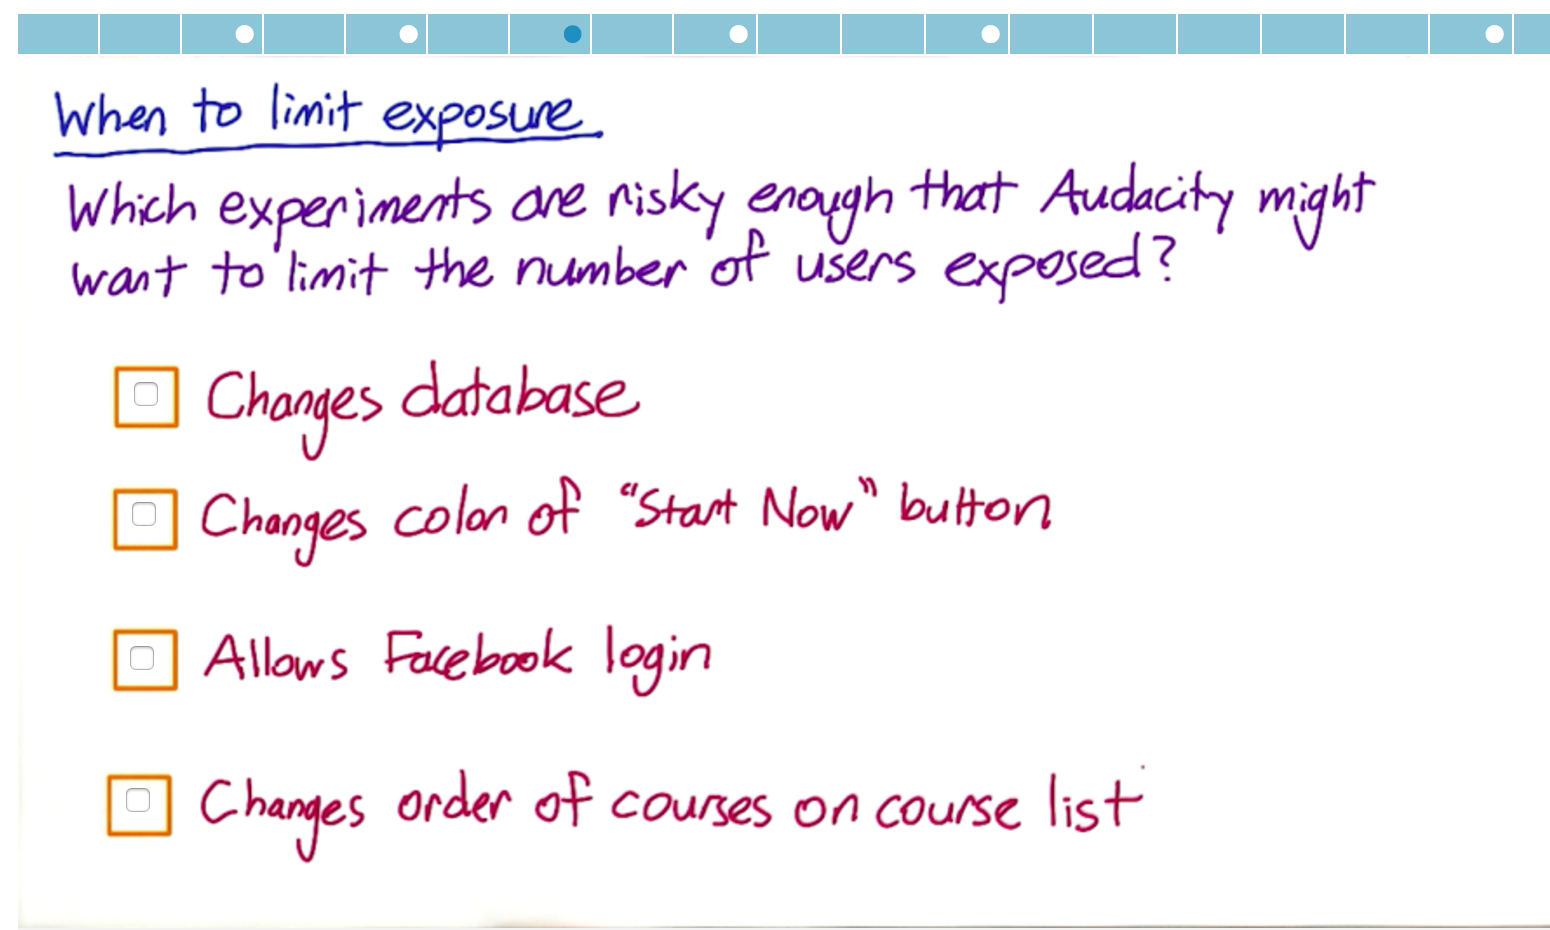 When to limit exposure
Which experiments are risky enough that Audacity might
want to limit the number of users exposed?
Changes database
Changes color of "Start Now" button
Allows Facebook login
Changes order of courses on course list